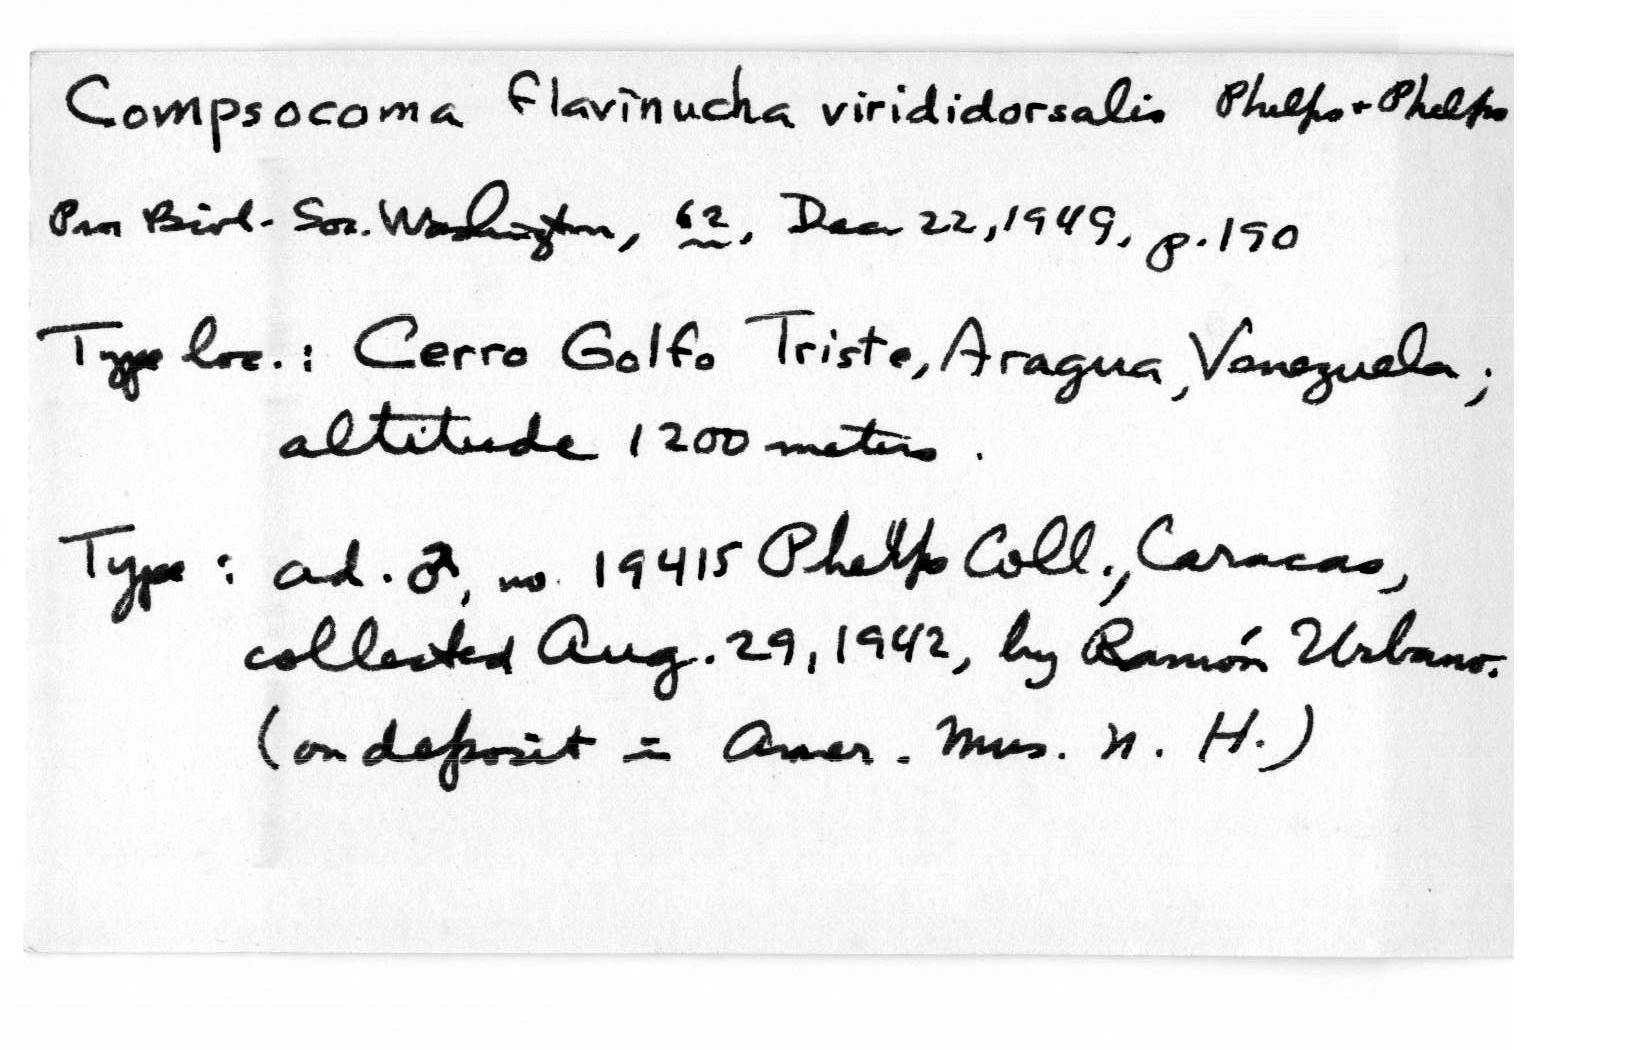 Compsocoma flavinucha virididorsalis Phelps + Phelps
Proc Biol. Soc. Washington, 62, Dec 22, 1949, p. 190
Type loc.: Cerro Golfo Triste, Aragua, Venezuela;
altitude 1200 meters.
Type: ad. ♂, no. 19415 Phelps Coll., Caracas,
collected Aug. 29, 1942, by Ramón Urbano.
(on deposit in Amer. Mus. N. H.)